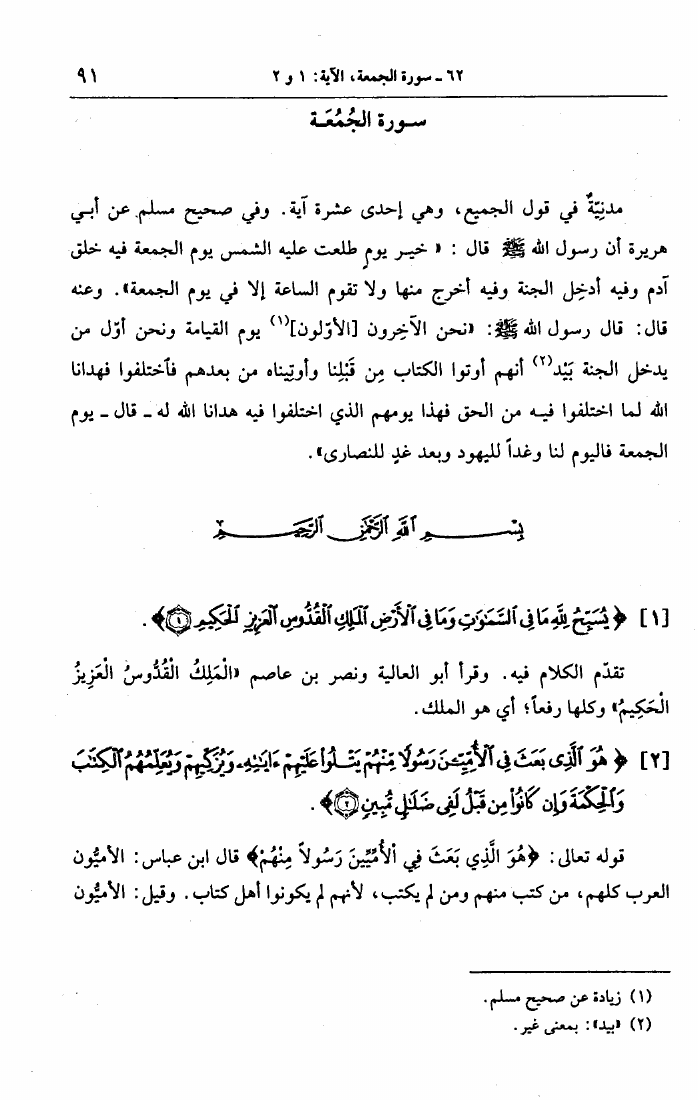 ٦٢ - سورة الجمعة، الآية: ١ و ٢
٩١
سورة الجُمُعَة
مدنِيّةٌ في قول الجميع، وهي إحدى عشرة آية. وفي صحيح مسلم عن أبي
هريرة أن رسول الله ﷺ قال : « خير يومٍ طلعت عليه الشمس يوم الجمعة فيه خلق
آدم وفيه أدخِل الجنة وفيه أخرج منها ولا تقوم الساعة إلا في يوم الجمعة». وعنه
قال: قال رسول الله ﷺ: «نحن الآخِرون [الأوّلون](١) يوم القيامة ونحن أوّل من
يدخل الجنة بَيْد(٢) أنهم أوتوا الكتاب مِن قَبْلِنا وأوتِيناه من بعدهم فٱختلفوا فهدانا
الله لما اختلفوا فيه من الحق فهذا يومهم الذي اختلفوا فيه هدانا الله له ـ قال ـ يوم
الجمعة فاليوم لنا وغداً لليهود وبعد غدٍ للنصارى».
بِسْمِ ٱللَّهِ ٱلرَّحْمَٰنِ ٱلرَّحِيمِ
[١] ﴿ يُسَبِّحُ لِلَّهِ مَا فِى ٱلسَّمَٰوَٰتِ وَمَا فِى ٱلْأَرْضِ ٱلْمَلِكِ ٱلْقُدُّوسِ ٱلْعَزِيزِ ٱلْحَكِيمِ ١﴾ .
تقدّم الكلام فيه. وقرأ أبو العالية ونصر بن عاصم «الْمَلِكُ الْقُدُّوسُ الْعَزِيزُ
الْحَكِيمُ» وكلها رفعاً؛ أي هو الملك.
[٢] ﴿ هُوَ ٱلَّذِى بَعَثَ فِى ٱلْأُمِّيِّـۧنَ رَسُولًا مِّنْهُمْ يَتْلُوا۟ عَلَيْهِمْ ءَايَٰتِهِۦ وَيُزَكِّيهِمْ وَيُعَلِّمُهُمُ ٱلْكِتَٰبَ
وَٱلْحِكْمَةَ وَإِن كَانُوا۟ مِن قَبْلُ لَفِى ضَلَٰلٍ مُّبِينٍ ٢﴾ .
قوله تعالى: ﴿هُوَ الَّذِي بَعَثَ فِي الْأُمِّيِّينَ رَسُولاً مِنْهُمْ﴾ قال ابن عباس: الأميُّون
العرب كلهم، من كتب منهم ومن لم يكتب، لأنهم لم يكونوا أهل كتاب. وقيل: الأميُّون
(١) زيادة عن صحيح مسلم.
(٢) «بيد»: بمعنى غير.